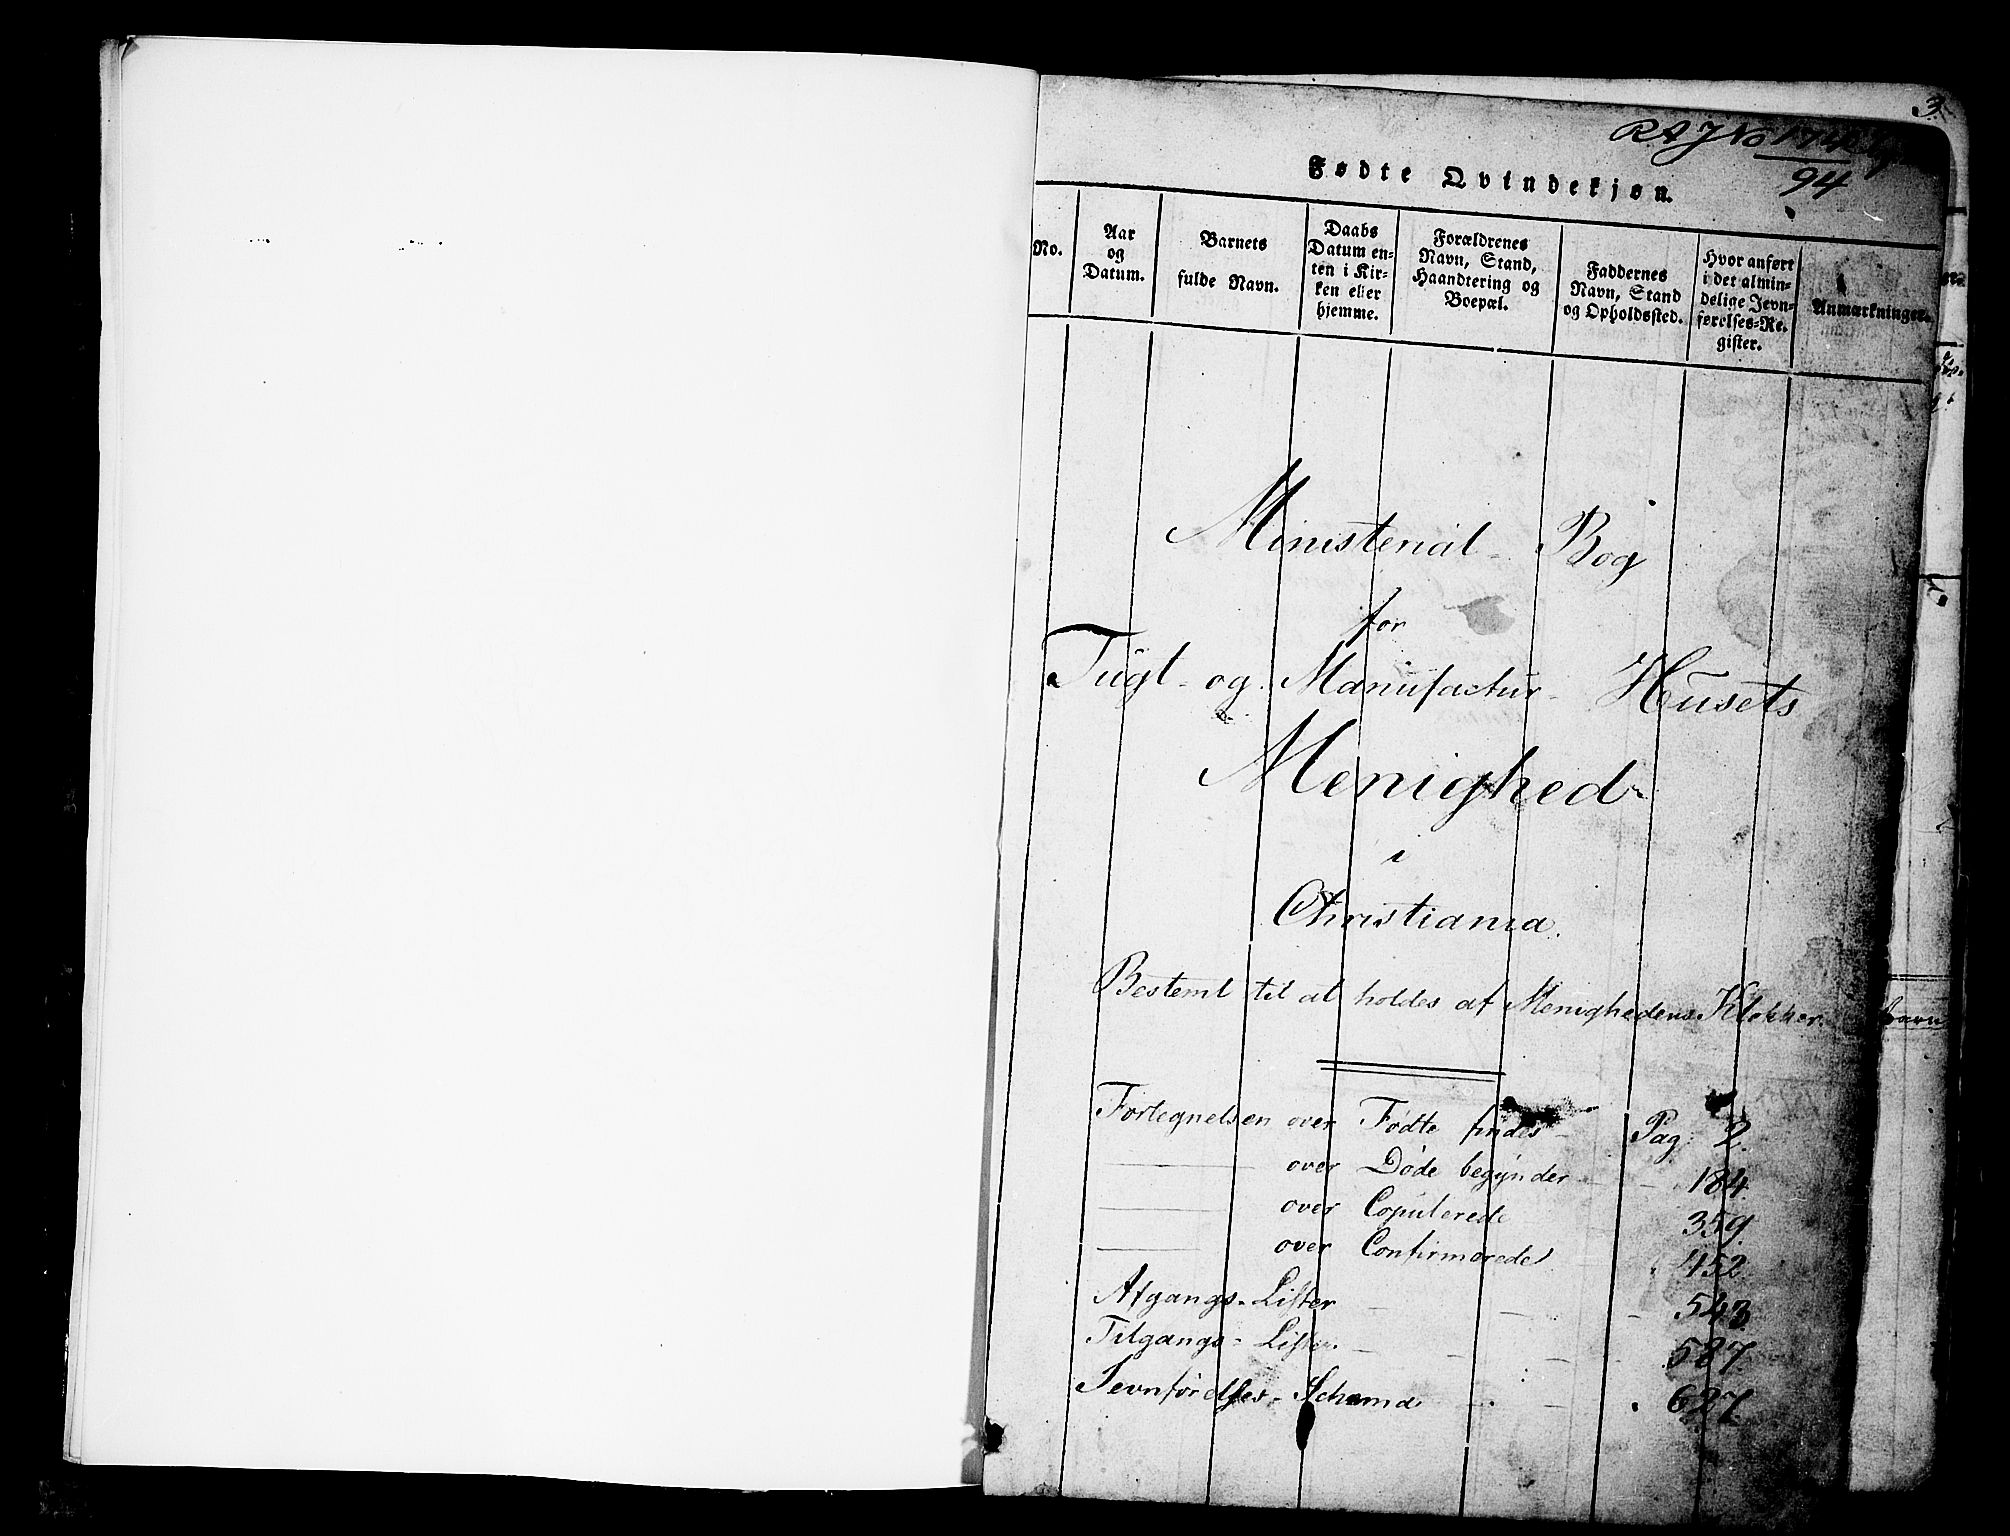 3.
RAJNo 174
94
Fødte Qvindekjøn.
No.
Aar
og
Datum.
Barnets
fulde Navn.
Daabs
Datum en-
ten i Kir-
ken eller
hjemme.
Forældrenes
Navn, Stand,
Haandtering og
Boepæl.
Faddernes
Navn, Stand
og Opholdssted.
Hvor anført
i det almin-
delige Jevn-
førelses-Re-
gister.
Anmærkninger.
Ministerial-Bog
for
Tugt- og Manufactur-Husets
Menighed
i
Christiania.
Bestemt til at holdes af Menighedens Klokker.
Fortegnelsen over Fødte findes Pag. 2.
over Døde begynder 184
over Copulerede 359
over Confirmerede 452
Afgangs-Lister 543
Tilgangs-Lister 587.
Jevnførelses-Schema 627